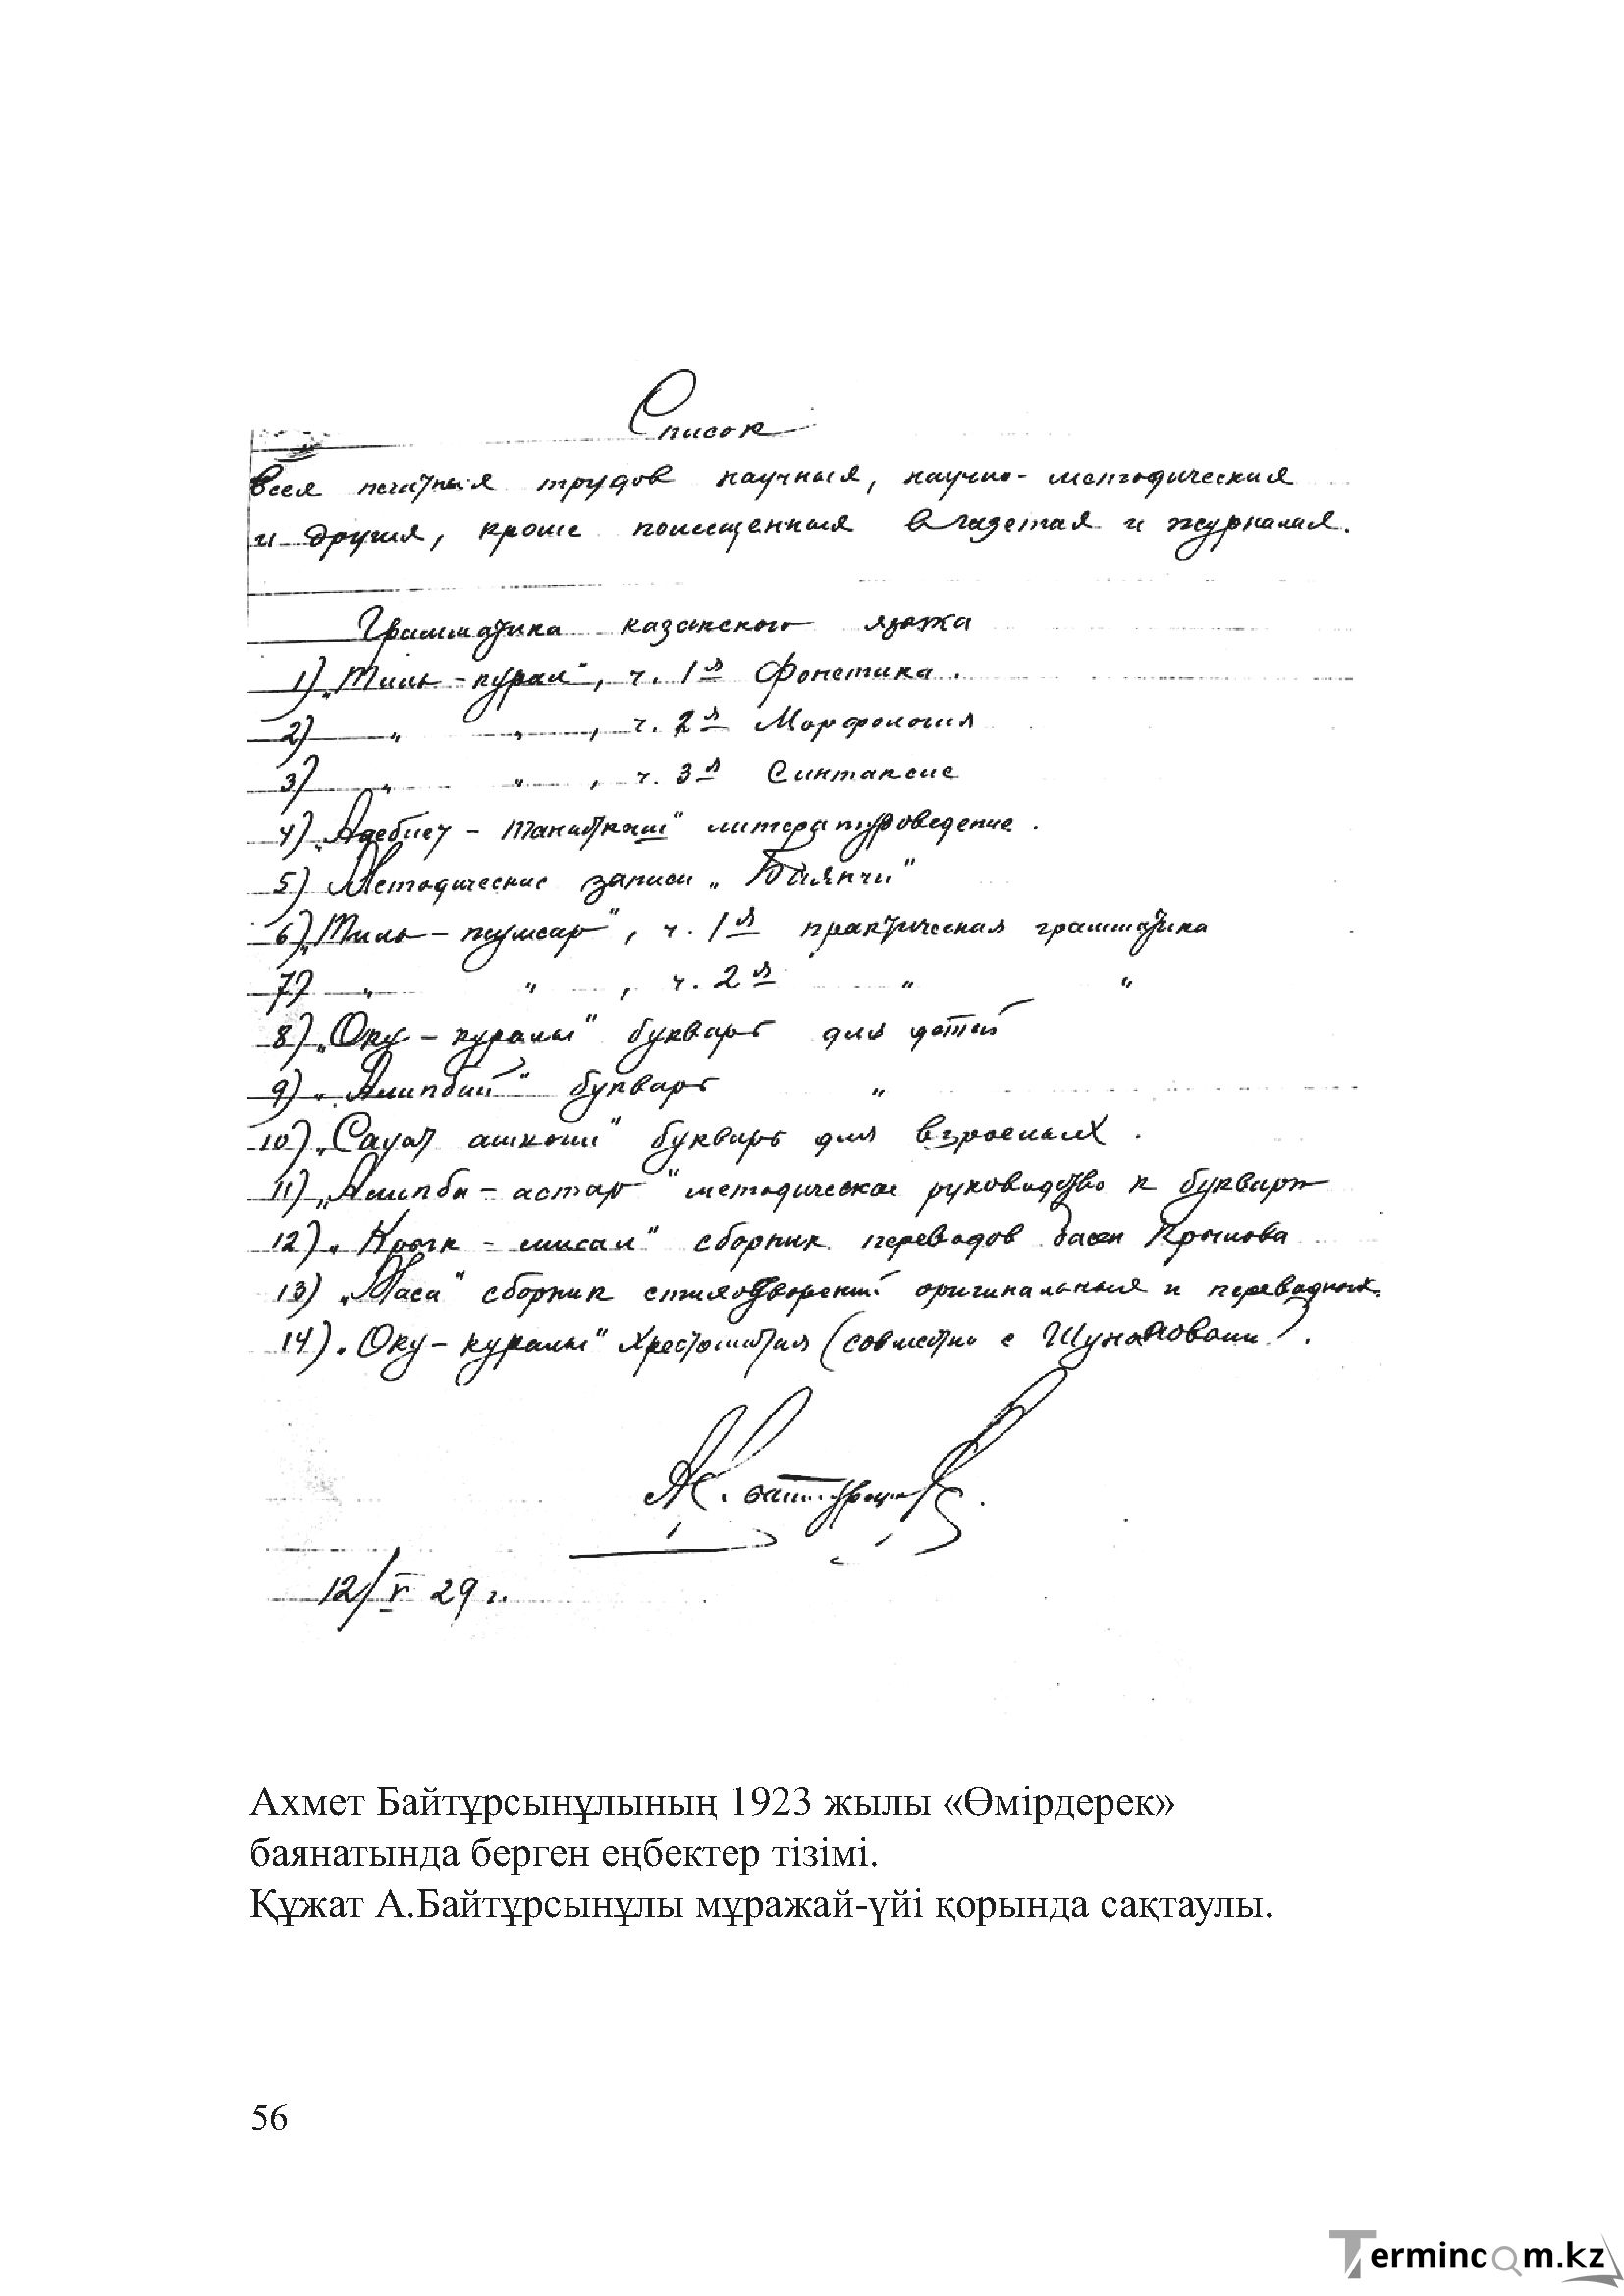 Список
всех печатных трудов научных, научно-методических
и других, кроме помещенных в газетах и журналах.
Грамматика казакского языка
1) „Тиль-курал", ч. 1я Фонетика.
2) „ „ , ч. 2я Морфология
3) „ „ , ч. 3я Синтаксис
4) „Адебиет-танытқыш" литературоведение.
5) Методические записи „Баянчи"
6) „Тиль-жумсар", ч. 1я практическая грамматика
7) „ „ , ч. 2я „ „
8) „Оку-куралы" букварь для детей
9) „Алипбий" букварь „
10) „Сауат ашкыш" букварь для взрослых.
11) „Алипби-астар" методическое руководство к букварю
12) „Кырк-мисал" сборник переводов басен Крылова
13) „Маса" сборник стихотворений оригинальных и переводных.
14) „Оку-куралы" Хрестоматия (совместно с Шонановым).
А. Байтурсынов.
12/V 29 г.
Ахмет Байтұрсынұлының 1923 жылы «Өмірдерек»
баянатында берген еңбектер тізімі.
Құжат А.Байтұрсынұлы мұражай-үйі қорында сақтаулы.
56
Termincom.kz